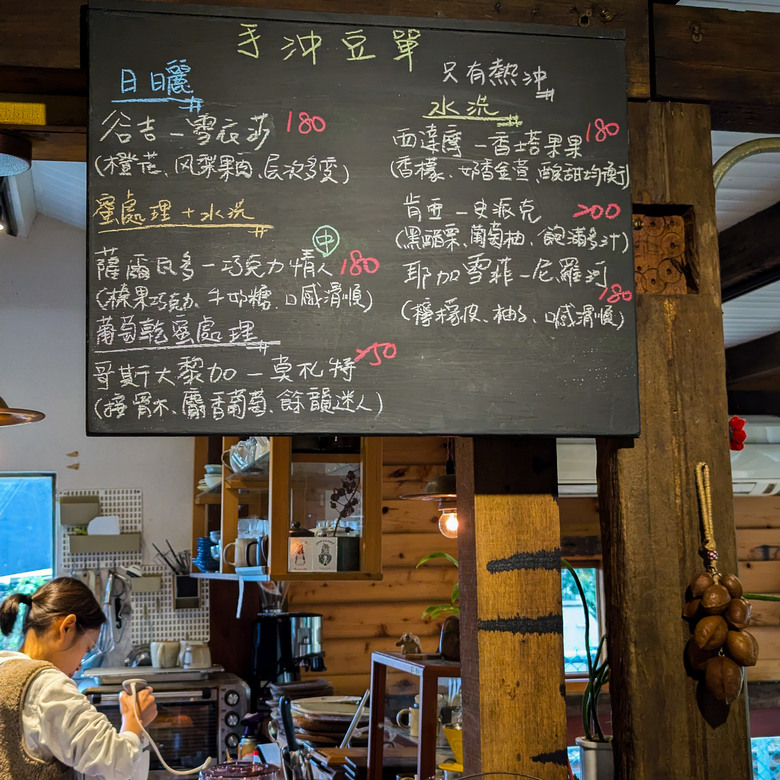 手沖豆單
只有熱沖
日曬
谷吉-雪衣莎 180
(橙花、风梨果肉、层次多变)
蜜處理+水洗
中
薩爾瓦多-巧克力情人 180
(榛果巧克力、牛奶糖、口感滑順)
葡萄乾蜜處理
哥斯大黎加-莫札特 250
(接骨木、麝香葡萄、餘韻迷人)
水洗
西達摩-香吉果果 180
(香檬、奶香金萱、酸甜均衡)
肯亚-史派克 200
(黑醋栗、葡萄柚、飽滿多汁)
耶加雪菲-尼羅河
180
(檸檬皮、柚子、口感滑順)